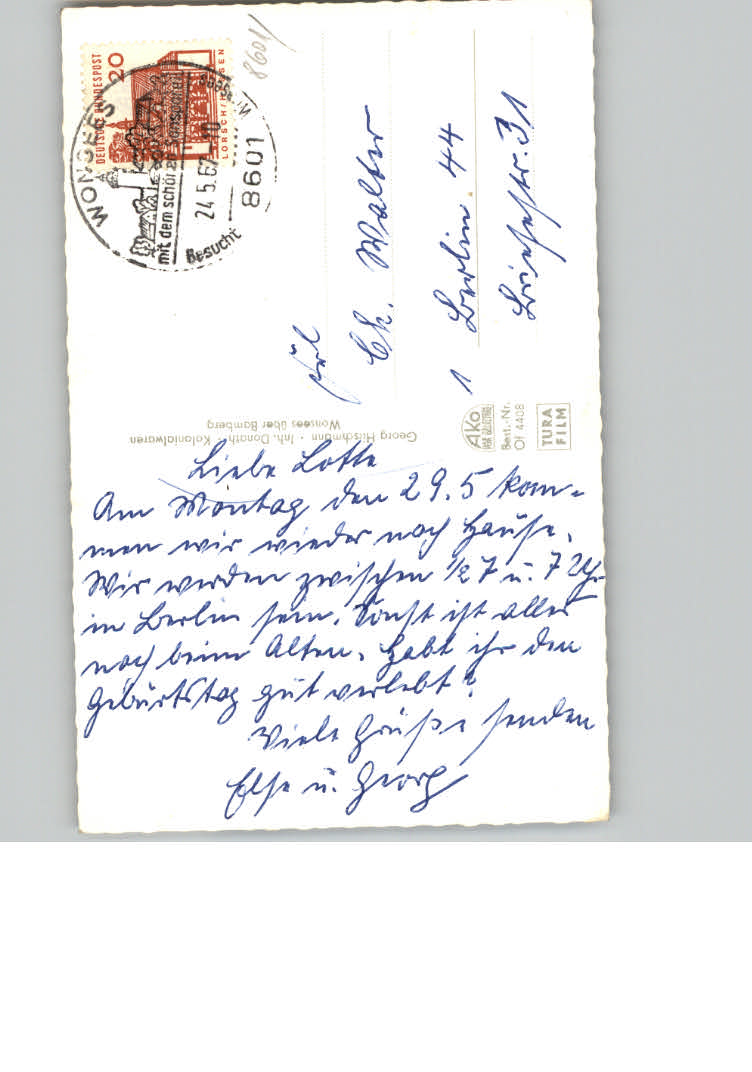 Liebe Lotte
Am Montag den 29.5 kom-
men wir wieder nach Hause.
Wir werden zwischen 1/2 7 u. 7 Uhr
in Berlin sein. Sonst ist alles
noch beim Alten. Habt ihr den
Geburtstag gut verlebt?
Viele Grüße senden
Else u. Georg
Georg Hirschmann · Inh. Donath · Kolonialwaren
Wonsees über Bamberg
Ako
Best.-Nr.
Of 4408
TURA
FILM
DEUTSCHE BUNDESPOST
20
LORSCH/HESSEN
WONSEES
8601
24.5.67
Besucht
mit dem schönen Sanspareil
8601
Frl
Ch. Walter
1 Berlin 44
Briesestr. 31